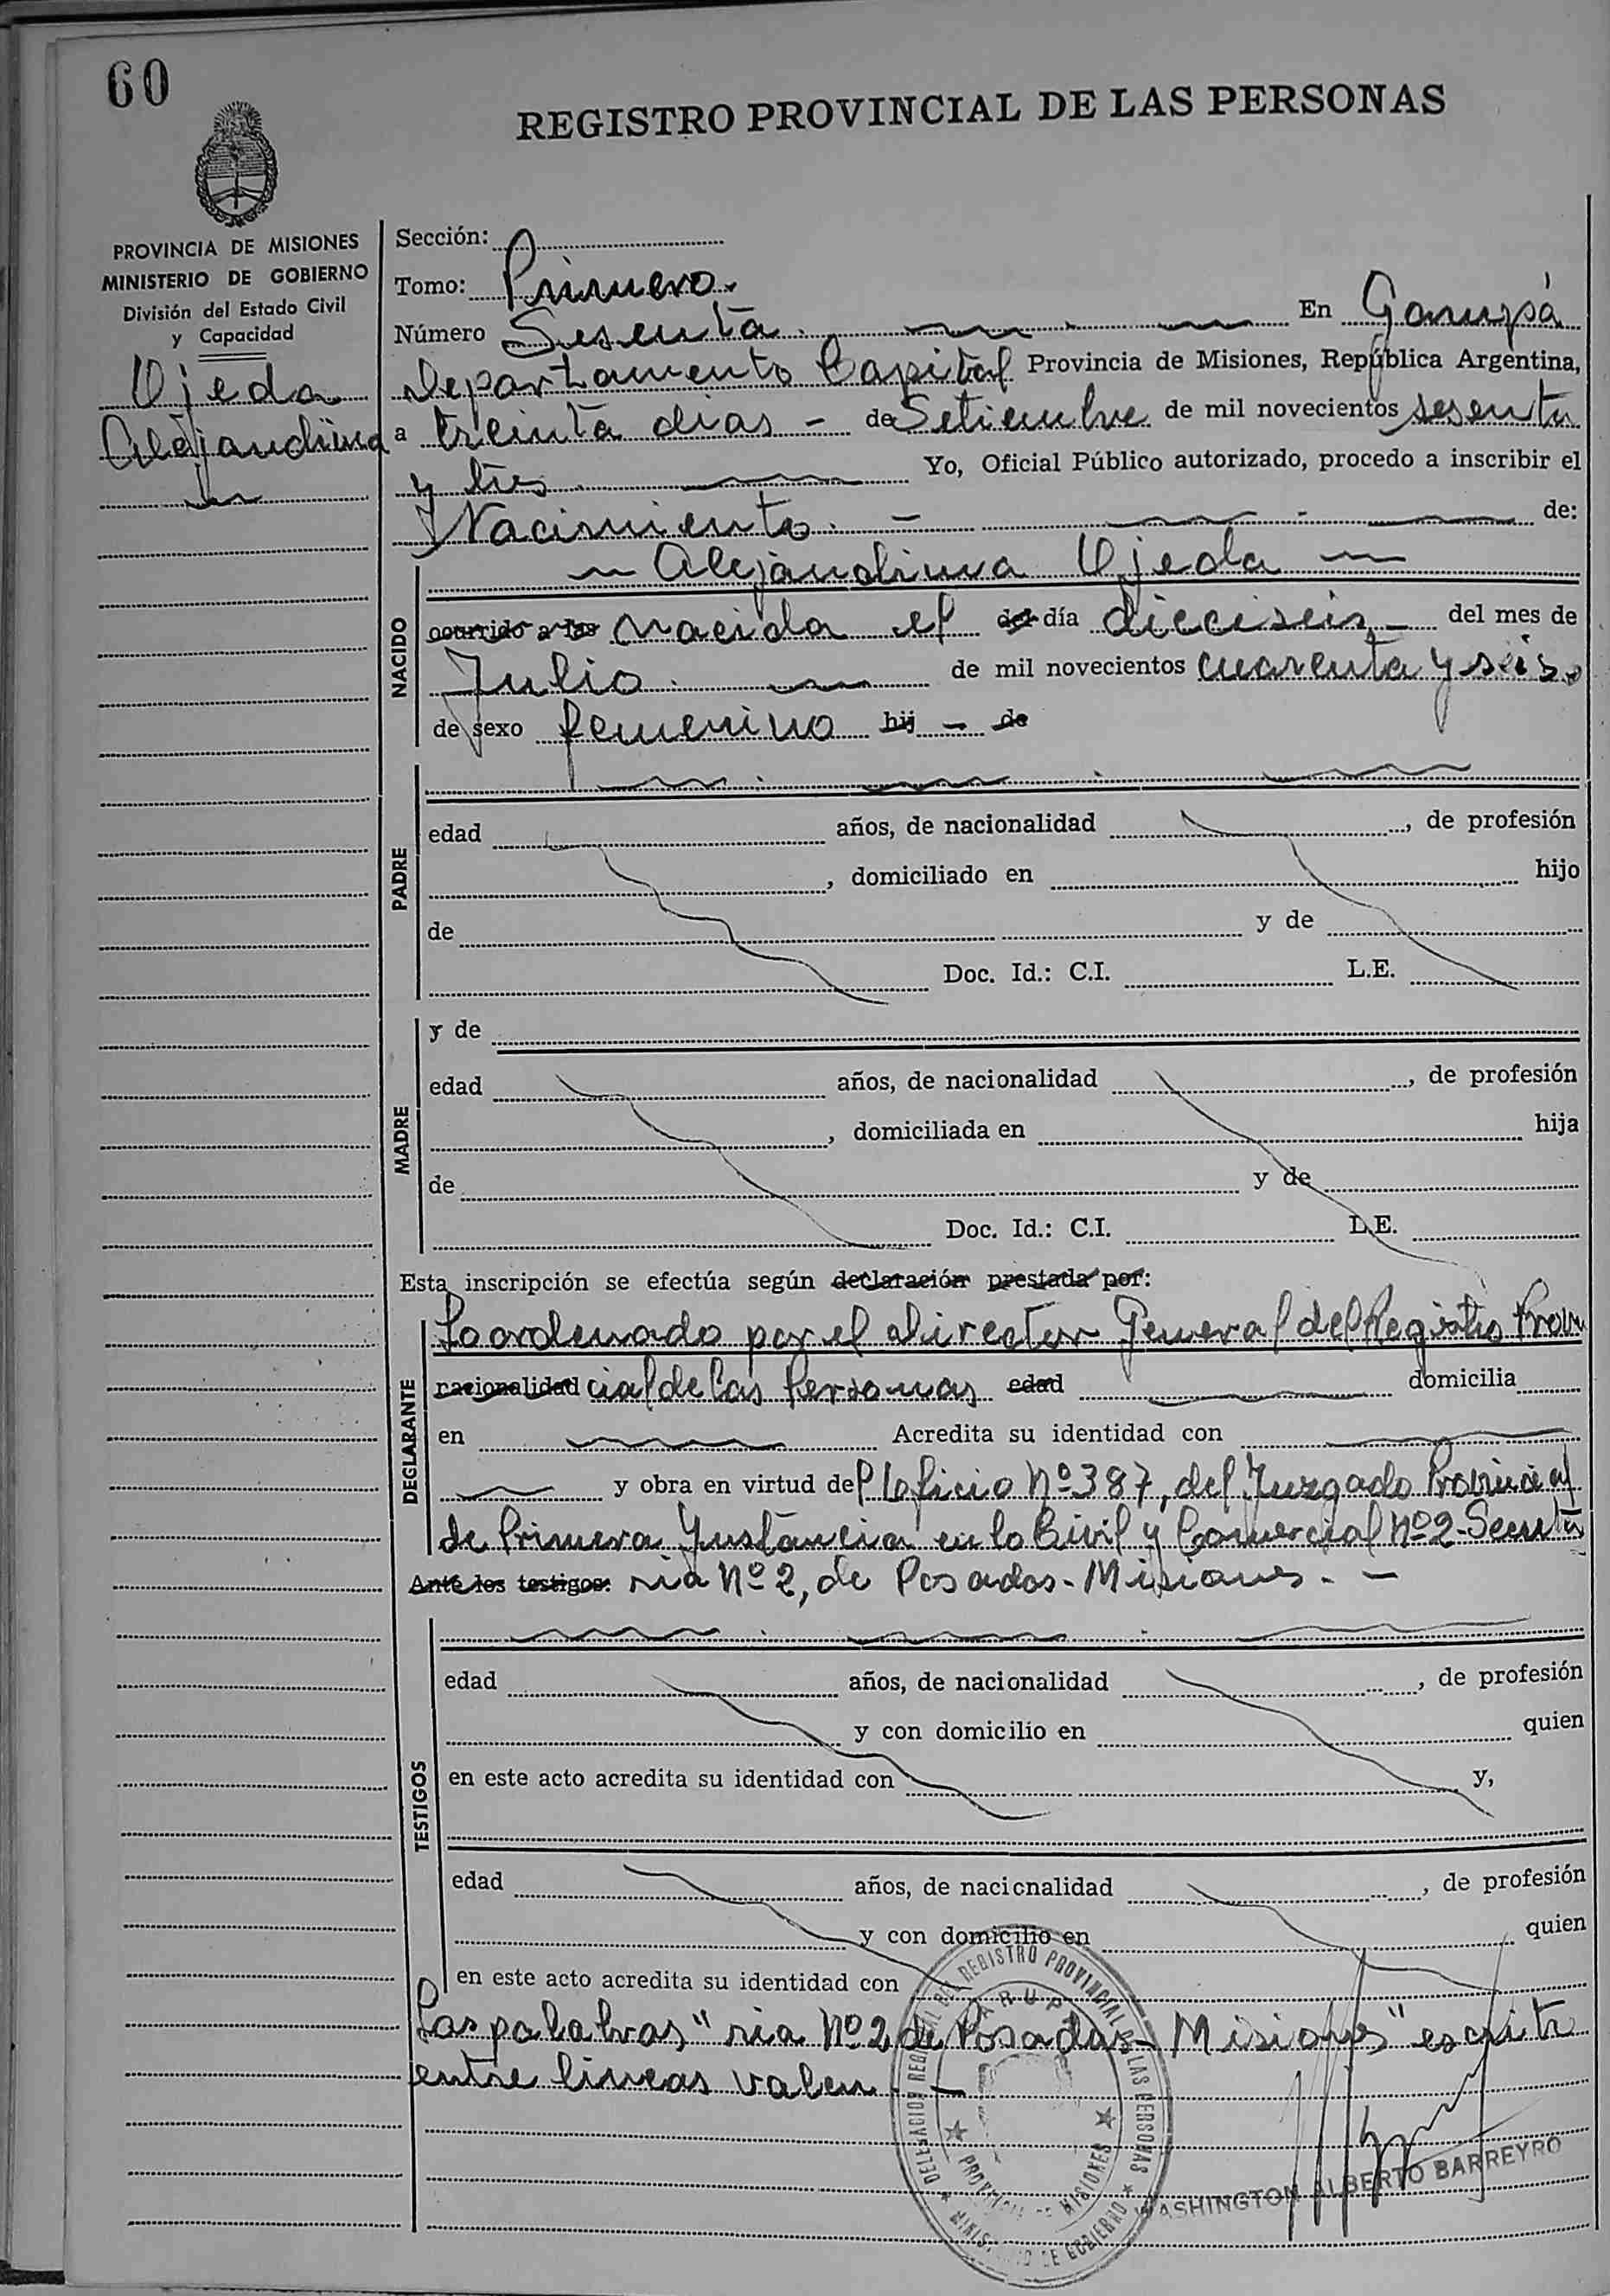 60
REGISTRO PROVINCIAL DE LAS PERSONAS
PROVINCIA DE MISIONES
MINISTERIO DE GOBIERNO
División del Estado Civil
y Capacidad
Ojeda
Alejandrina
Sección:
Tomo: Primero.
Número Sesenta. En Garupá
Departamento Capital Provincia de Misiones, República Argentina,
a treinta dias - de Setiembre de mil novecientos sesenta
y tres Yo, Oficial Público autorizado, procedo a inscribir el
Nacimiento. - de:
NACIDO
Alejandrina Ojeda
ocurrido a las nacida el del día dieciseis - del mes de
Julio. de mil novecientos cuarenta y seis.
de sexo femenino hij - de
PADRE
edad años, de nacionalidad , de profesión
, domiciliado en hijo
de y de
Doc. Id.: C.I. L.E.
MADRE
y de
edad años, de nacionalidad , de profesión
, domiciliada en hija
de y de
Doc. Id.: C.I. L.E.
Esta inscripción se efectúa según declaración prestada por:
DECLARANTE
Lo ordenado por el Director General del Registro Provin
nacionalidad cial de las Personas edad domicilia
en Acredita su identidad con
y obra en virtud del Oficio Nº 387, del Juzgado Provincial
de Primera Instancia en lo Civil y Comercial Nº 2 - Secreta
Ante los testigos: ria Nº 2, de Posadas - Misiones. -
TESTIGOS
edad años, de nacionalidad , de profesión
y con domicilio en quien
en este acto acredita su identidad con y,
edad años, de nacionalidad , de profesión
y con domicilio en quien
en este acto acredita su identidad con
Las palabras "ria Nº 2 de Posadas - Misiones" escrita
entre lineas valen. -
DELEGACION REGIONAL DEL REGISTRO PROVINCIAL DE LAS PERSONAS
GARUPA
PROVINCIA DE MISIONES
MINISTERIO DE GOBIERNO
WASHINGTON ALBERTO BARREYRO